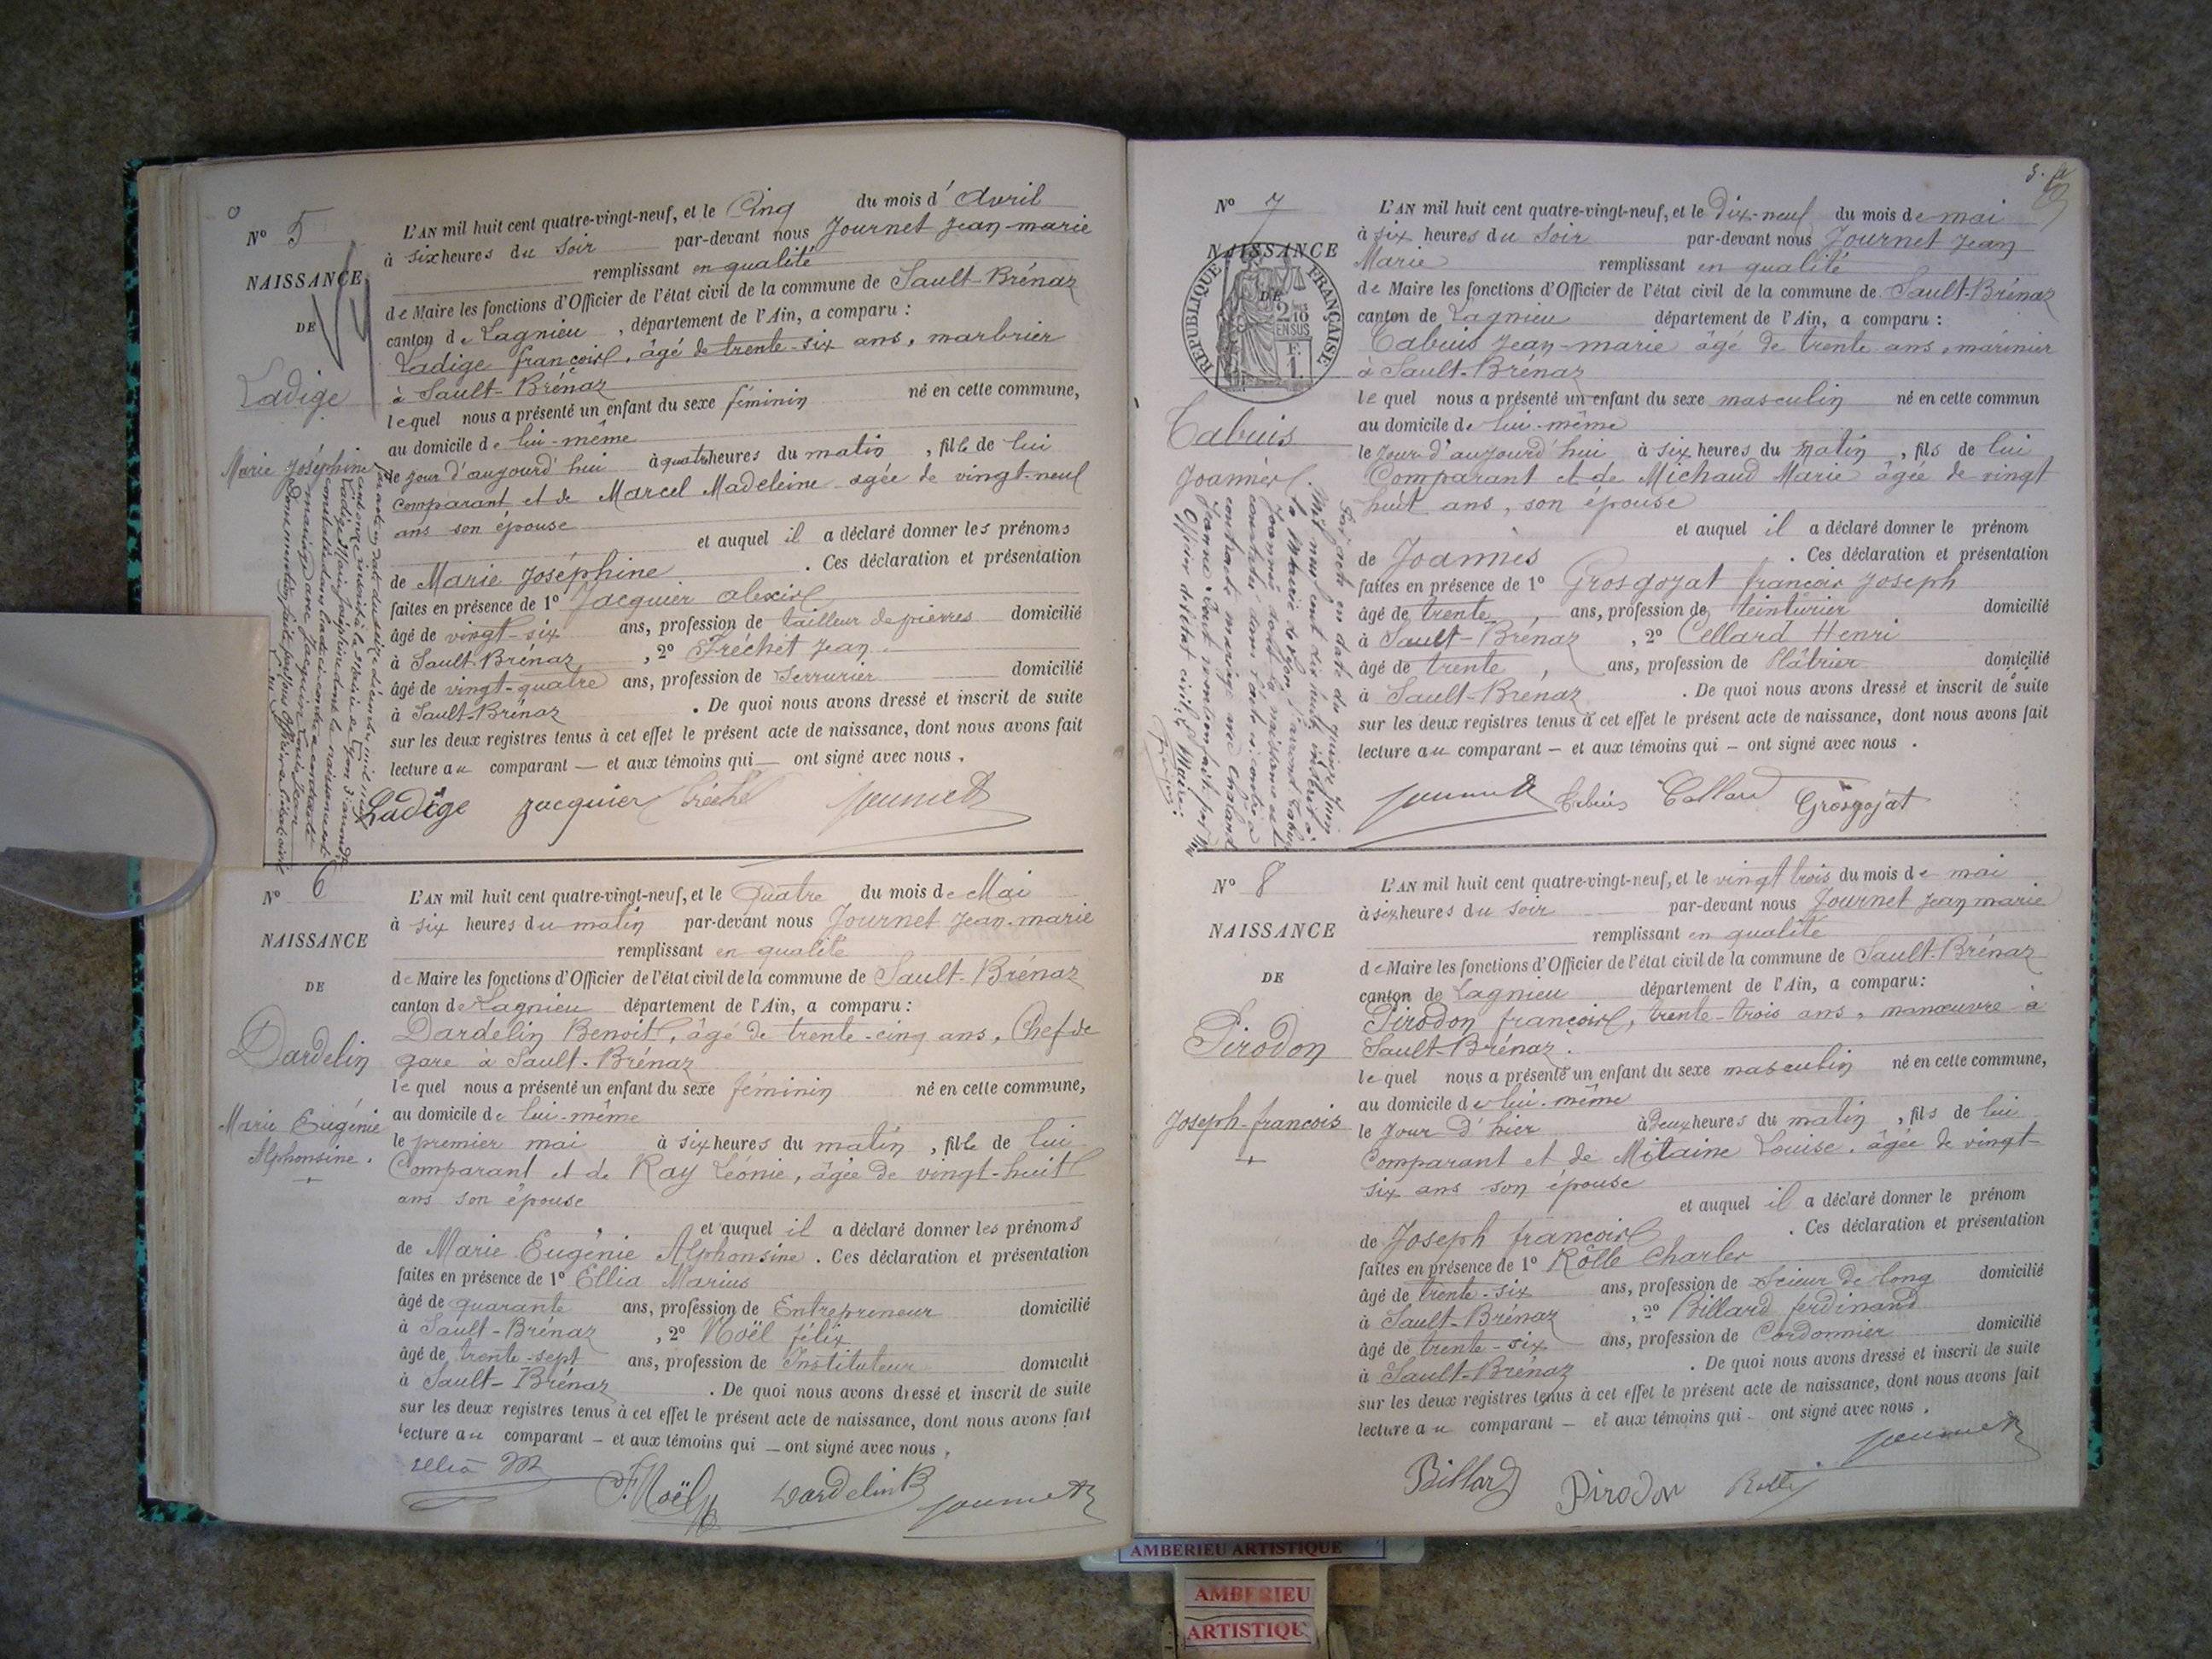 Nº 5
NAISSANCE
DE
Ladige
Marie Joséphine
L'AN mil huit cent quatre-vingt-neuf, et le Cinq du mois d'Avril
à six heures du Soir par-devant nous Journet Jean-marie
remplissant en qualité
de Maire les fonctions d'Officier de l'état civil de la commune de Sault-Brénaz
canton de Lagnieu, département de l'Ain, a comparu :
Ladige françois, âgé de trente-six ans, marbrier
à Sault-Brénaz
lequel nous a présenté un enfant du sexe féminin né en cette commune,
au domicile de lui-même
le jour d'aujourd'hui à quatre heures du matin, fille de lui
comparant et de Marcel Madeleine agée de vingt-neuf
ans son épouse
et auquel il a déclaré donner les prénoms
de Marie Joséphine. Ces déclaration et présentation
faites en présence de 1º Jacquier alexis
âgé de vingt-six ans, profession de tailleur de pierres domicilié
à Sault-Brénaz, 2º Fréchet Jean
âgé de vingt-quatre ans, profession de Serrurier domicilié
à Sault-Brénaz. De quoi nous avons dressé et inscrit de suite
sur les deux registres tenus à cet effet le présent acte de naissance, dont nous avons fait
lecture au comparant — et aux témoins qui — ont signé avec nous.
Ladige Jacquier Fréchet Journet
Nº 6
NAISSANCE
DE
Dardelin
Marie Eugénie
Alphonsine.
L'AN mil huit cent quatre-vingt-neuf, et le Quatre du mois de Mai
à six heures du matin par-devant nous Journet Jean-marie
remplissant en qualité
de Maire les fonctions d'Officier de l'état civil de la commune de Sault-Brénaz
canton de Lagnieu département de l'Ain, a comparu :
Dardelin Benoit, âgé de trente-cinq ans, Chef de
gare à Sault-Brénaz
lequel nous a présenté un enfant du sexe féminin né en cette commune,
au domicile de lui-même
le premier mai à six heures du matin, fille de lui
Comparant et de Ray Léonie, âgée de vingt-huit
ans son épouse
et auquel il a déclaré donner les prénoms
de Marie Eugénie Alphonsine. Ces déclaration et présentation
faites en présence de 1º Ellia Marius
âgé de quarante ans, profession de Entrepreneur domicilié
à Sault-Brénaz, 2º Noël félix
âgé de trente-sept ans, profession de Instituteur domicilié
à Sault-Brénaz. De quoi nous avons dressé et inscrit de suite
sur les deux registres tenus à cet effet le présent acte de naissance, dont nous avons fait
lecture au comparant — et aux témoins qui — ont signé avec nous.
Ellia M F. Noël Dardelin B Journet
Nº 7
NAISSANCE
DE
RÉPUBLIQUE FRANÇAISE
2/10
EN SUS
F.
1.
Tabuis
Joannès
L'AN mil huit cent quatre-vingt-neuf, et le Dix-neuf du mois de mai
à six heures du Soir par-devant nous Journet Jean
Marie remplissant en qualité
de Maire les fonctions d'Officier de l'état civil de la commune de Sault-Brénaz
canton de Lagnieu département de l'Ain, a comparu :
Tabuis Jean-marie âgé de trente ans, marinier
à Sault-Brénaz
lequel nous a présenté un enfant du sexe masculin né en cette commun
au domicile de lui-même
le jour d'aujourd'hui à six heures du matin, fils de lui
Comparant et de Michaud Marie âgée de vingt
huit ans, son épouse
et auquel il a déclaré donner le prénom
de Joannès. Ces déclaration et présentation
faites en présence de 1º Grosgojat françois Joseph
âgé de trente ans, profession de teinturier domicilié
à Sault-Brénaz, 2º Cellard Henri
âgé de trente, ans, profession de Plâtrier domicilié
à Sault-Brénaz. De quoi nous avons dressé et inscrit de suite
sur les deux registres tenus à cet effet le présent acte de naissance, dont nous avons fait
lecture au comparant — et aux témoins qui — ont signé avec nous.
Journet Tabuis Cellard Grosgojat
Nº 8
NAISSANCE
DE
Pirodon
Joseph-francois
L'AN mil huit cent quatre-vingt-neuf, et le vingt trois du mois de mai
à six heures du soir par-devant nous Journet Jean marie
remplissant en qualité
de Maire les fonctions d'Officier de l'état civil de la commune de Sault-Brénaz
canton de Lagnieu département de l'Ain, a comparu :
Pirodon françois, trente-trois ans, manœuvre à
Sault-Brénaz.
lequel nous a présenté un enfant du sexe masculin né en cette commune,
au domicile de lui-même
le Jour d'hier à Deux heures du matin, fils de lui
Comparant et de Mitaine Louise, âgée de vingt-
six ans son épouse
et auquel il a déclaré donner le prénom
de Joseph françois. Ces déclaration et présentation
faites en présence de 1º Rolle Charles
âgé de trente-six ans, profession de Scieur de long domicilié
à Sault-Brénaz, 2º Billard ferdinand
âgé de trente-six ans, profession de Cordonnier domicilié
à Sault-Brénaz. De quoi nous avons dressé et inscrit de suite
sur les deux registres tenus à cet effet le présent acte de naissance, dont nous avons fait
lecture au comparant — et aux témoins qui - ont signé avec nous.
Journet
Billard Pirodon Rolle
AMBERIEU ARTISTIQUE
AMBERIEU
ARTISTIQUE